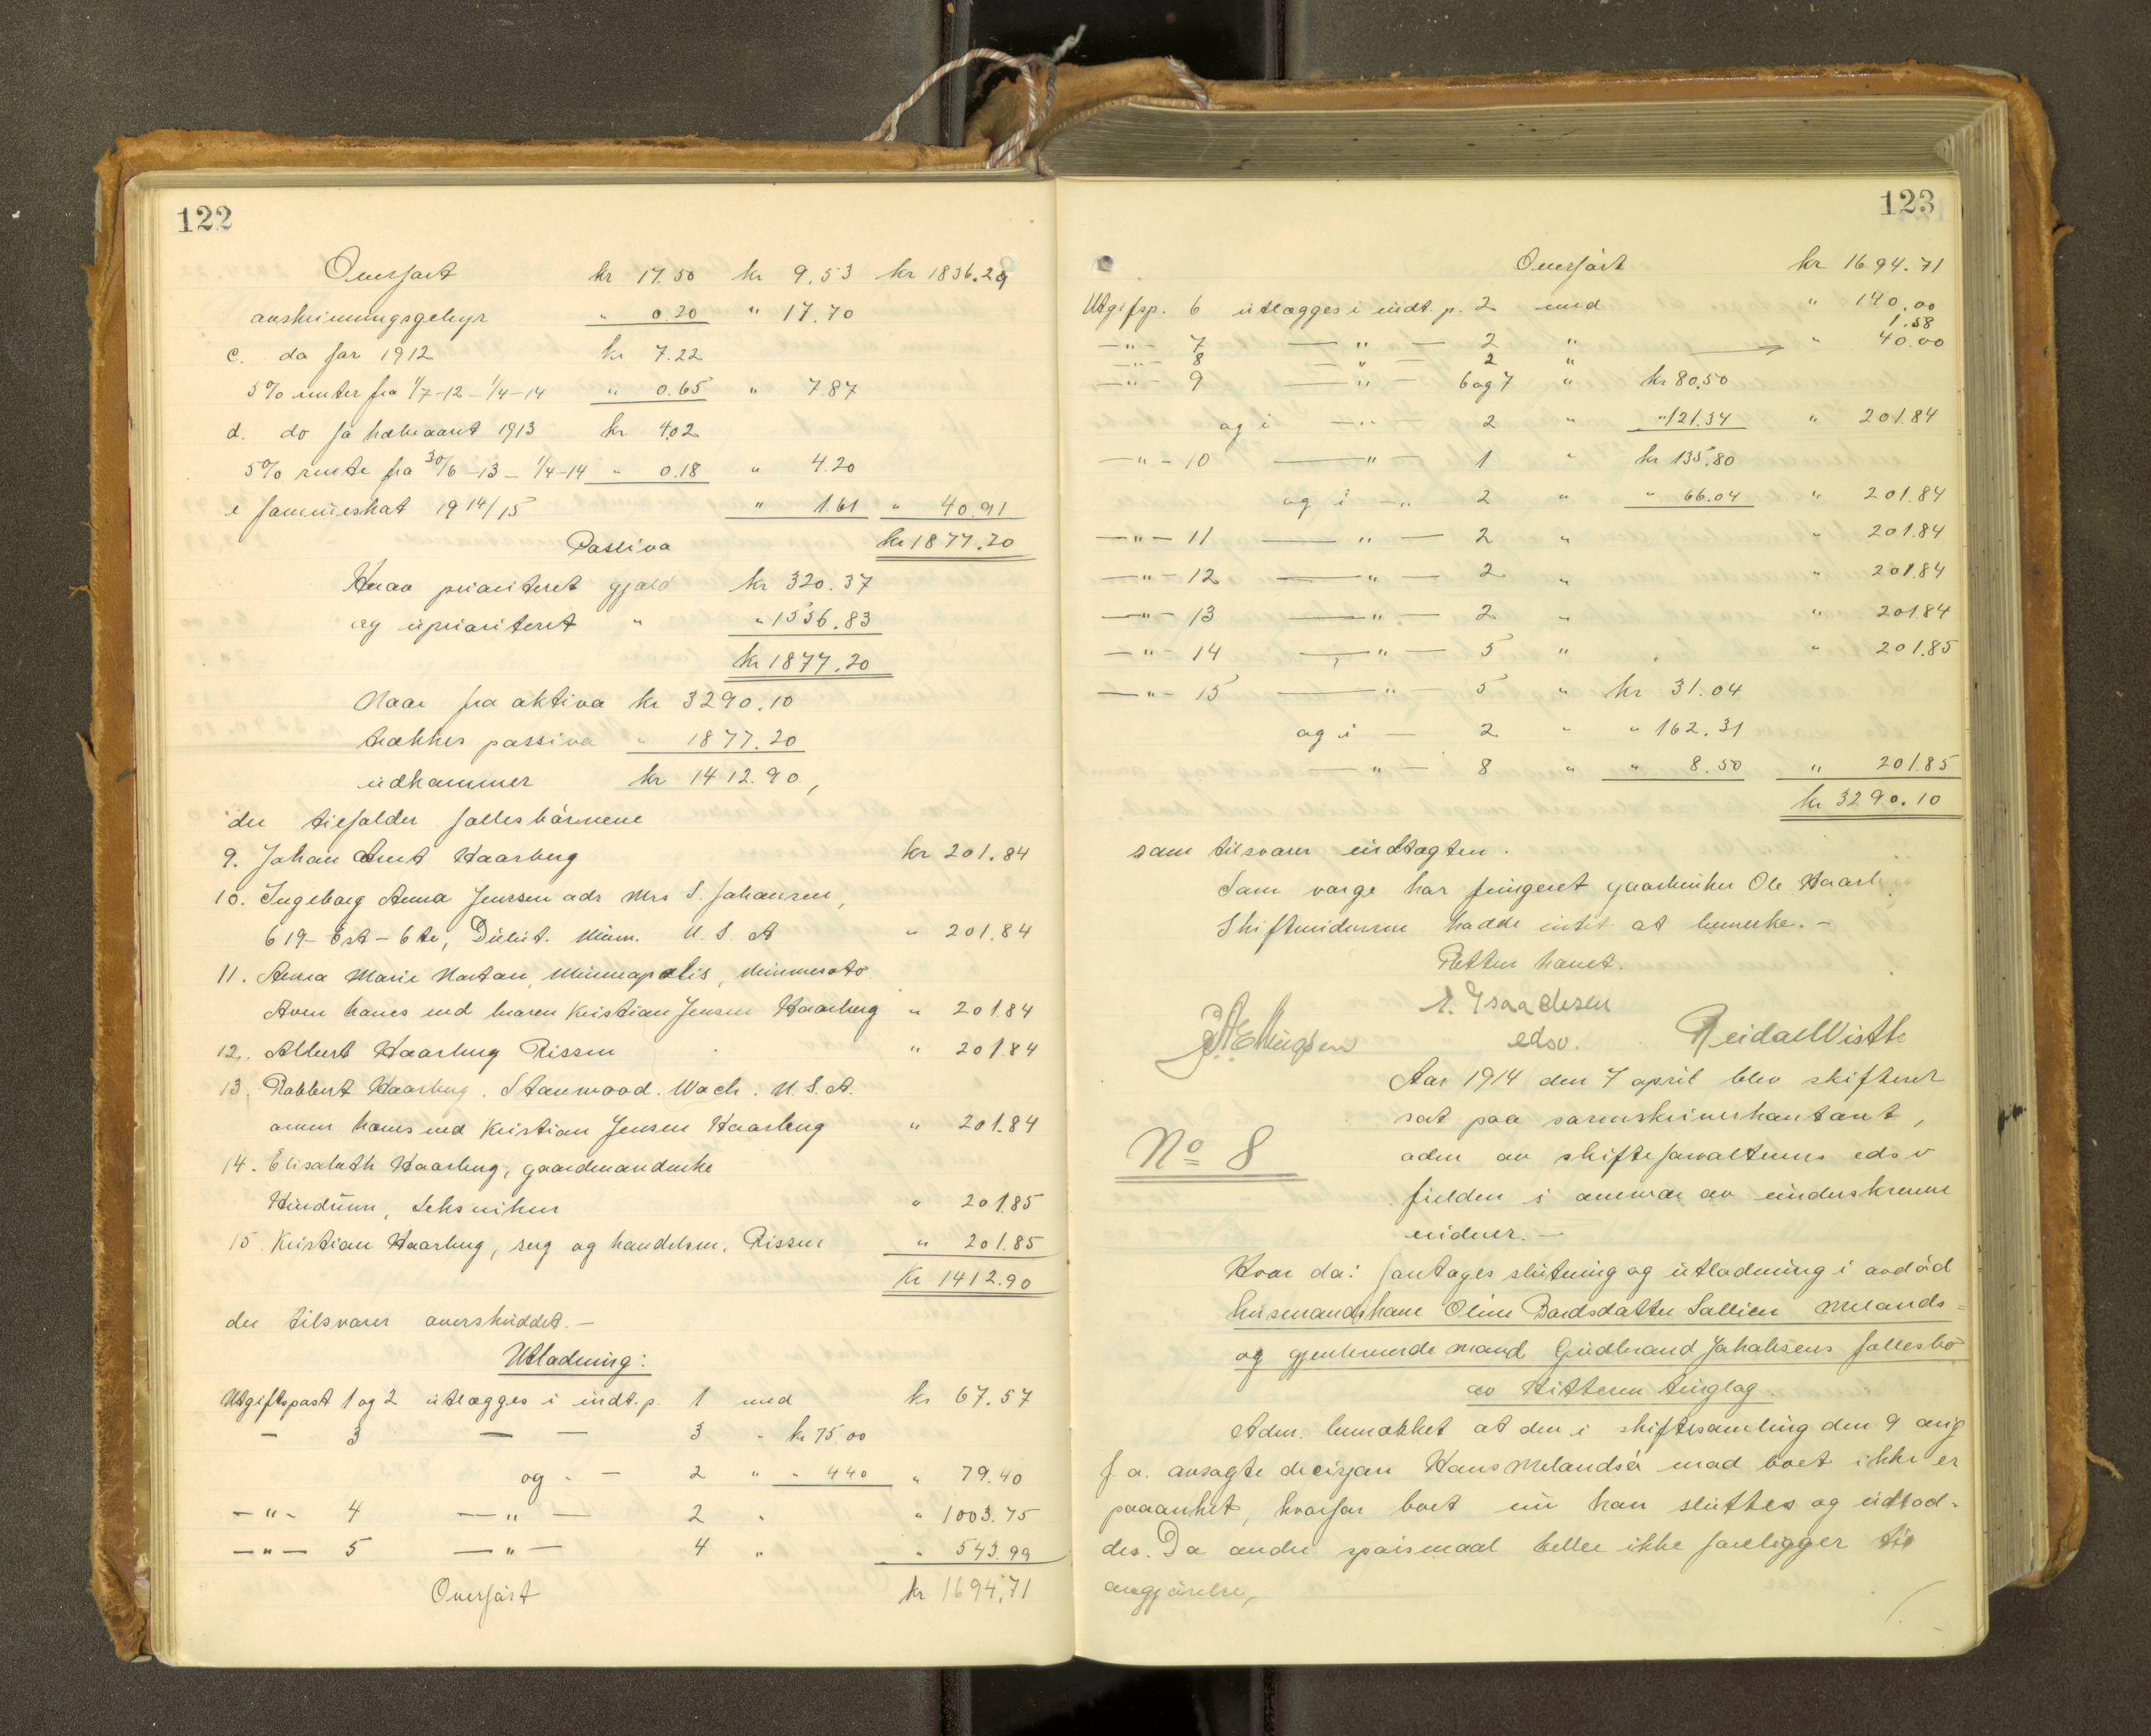 122
Overført kr 17.50 kr 9.53 kr 1836.29
avskrivningsgebyr " 0.20 " 17.70
c. do for 1912 kr 7.22
5% renter fra 1/7-12 - 1/4-14 " 0.65 " 7.87
d. do fo halvaaret 1913 kr 4.02
5% rente fra 30/6-13 - 1/4-14 " 0.18 " 4.20
e formueskat 1914/15 " 1.61 " 40.91
Passiva kr 1877.20
Hvorav prioriteret gjæld kr 320.37
og uprioriteret " " 1556.83
kr 1877.20
Naar fra aktiva kr 3290.10
trækkes passiva " 1877.20
udkommer kr 1412.90,
der tilfalder fællesbørnene
9. Johan Arnt Haarberg kr 201.84
10. Ingeborg Anna Jenssen adr Mrs S. Johansen,
619 - Est - 6 te, Dulut. Minn. U. S. A " 201.84
11. Anna Marie Hortan, Minneapolis, Minnesoto
Arven haves ved broren Kristian Jensen Haarberg " 201.84
12. Albert Haarberg Rissen " 201.84
13. Robbert Haarberg. Stanwood. Wach. U. S. A.
arven haves ved Kristian Jensen Haarberg " 201.84
14. Elisabeth Haarberg, gaardmandenke
Hindrum, Leksviken " 201.85
15. Kristian Haarberg, serg og handelsm. Rissen " 201.85
Kr 1412.90
der tilsvarer overskuddet. -
Utlodning:
Utgiftspost 1 og 2 utlægges i indt. p. 1 med kr 67.57
- 3 - - 3 " kr 75.00
og " - 2 " " 4.40 " 79.40
- " - 4 - " - 2 " " 1003.75
- " - 5 - " - 4 " " 543.99
Overført kr 1694.71
123
Overført kr 1694.71
Utgiftsp. 6 utlægges i indt. p. 2 med " 140.00
1.58
- " - 7 - " - 2 " " 40.00
- " - 8 - " - 2 "
- " - 9 - " - 6 og 7 " kr 80.50
og i - " - 2 " " 121.34 " 201.84
- " - 10 - " - 1 " kr 135.80
og i - " - 2 " " 66.04 " 201.84
- " - 11 - " - 2 " " 201.84
- " - 12 - " - 2 " " 201.84
- " - 13 - " - 2 " " 201.84
- " - 14 - " - 5 " " 201.85
- " - 15 - " - 5 " kr 31.04
og i - 2 " " 162.31
- " - 8 " " 8.50 " 201.85
kr 3290.10
som tilsvarer indtægten.
Som verge har fungeret gaardbruker Ole Haarb.
Skiftevidnerne hadde intet at bemerke. -
Retten hævet.
E. Isaachsen
edsv. Reidar Wisth
Aar 1914 den 7 april blev skifteret
sat paa sorenskriverkontoret,
adm av skifteforvalterens edsv
fuldm i overvær av underskrevne
vidner. -
No 8
Hvor da: foretages slutning og utlodning i avdød
husmandskone Oline Baardsdatter Sallien Melands-
og gjenlevende mand Gudbrand Jakobsens fællesbo
av Hitteren tinglag.
Adm. bemerket at den i skiftesamling den 9 aug
f. a. avsagte decisjon Hans Melandsø mod boet ikke er
paaanket, hvorfor boet nu kan sluttes og udlod-
des. Da andre spørsmaal heller ikke foreligger til
avgjørelse,